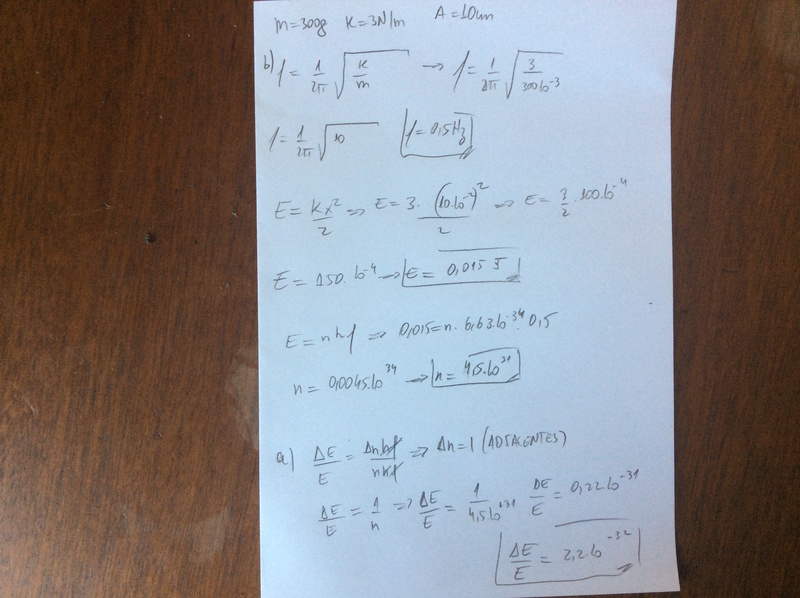 m=300g K=3N/m A=10cm
b) f = 1/2π √(K/m) → f = 1/2π √(3/300.10⁻³)
f = 1/2π √10 f=0,5Hz
E = Kx²/2 => E = 3.(10.10⁻²)²/2 => E = 3/2 . 100.10⁻⁴
E = 150.10⁻⁴ → E = 0,015 J
E = nhf => 0,015=n. 6,63.10⁻³⁴. 0,5
n = 0,0045.10³⁴ → n = 4,5.10³¹
a) ΔE/E = Δnhf/nhf => Δn=1 (ADJACENTES)
ΔE/E = 1/n => ΔE/E = 1/4,5.10⁺³¹ ΔE/E = 0,22.10⁻³¹
ΔE/E = 2,2.10⁻³²